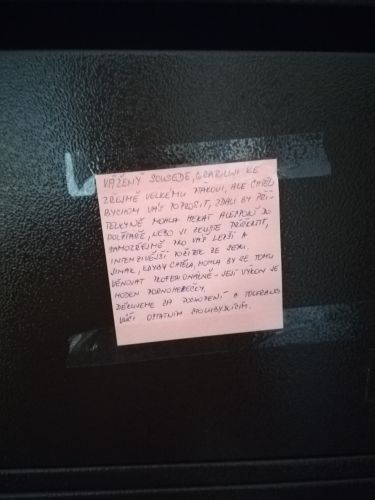 VÁŽENÝ SOUSEDE, GRATULUJI KE
ZŘEJMĚ VELKÉMU PÁROVI, ALE CHTĚLI
BYCHOM VÁS POPROSIT, ZDALI BY PŘÍ-
TELKYNĚ MOHLA HEKAT ALESPOŇ DO
POLŠTÁŘE, NEBO JI ZKUSTE PŘIŠKRTIT,
SAMOZŘEJMĚ PRO VÁŠ LEPŠÍ A
INTENZIVNĚJŠÍ POŽITEK ZE SEXU.
JINAK, KDYBY CHTĚLA, MOHLA BY SE TOMU
VĚNOVAT PROFESIONÁLNĚ - JEJÍ VÝKON JE
HODEN PORNOHEREČKY.
DĚKUJEME ZA POCHOPENÍ A TOLERANCI
VŮČI OSTATNÍM SPOLUBYDLÍCÍM.